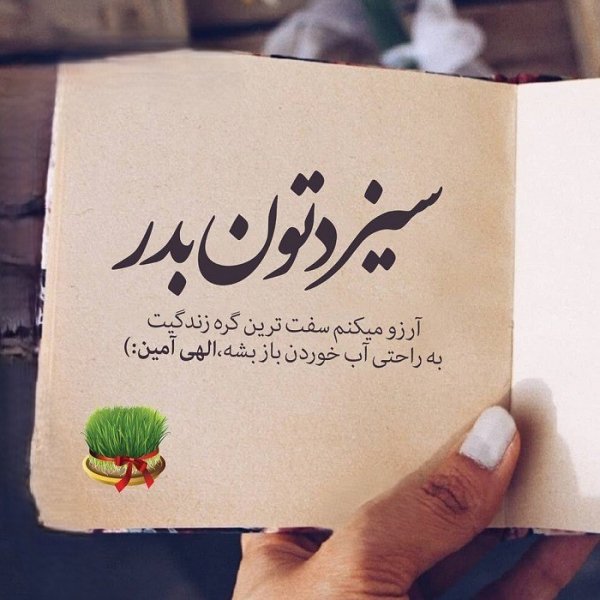 سیزدتون بدر
آرزو میکنم سفت ترین گره زندگیت
به راحتی آب خوردن باز بشه،الهی آمین:)